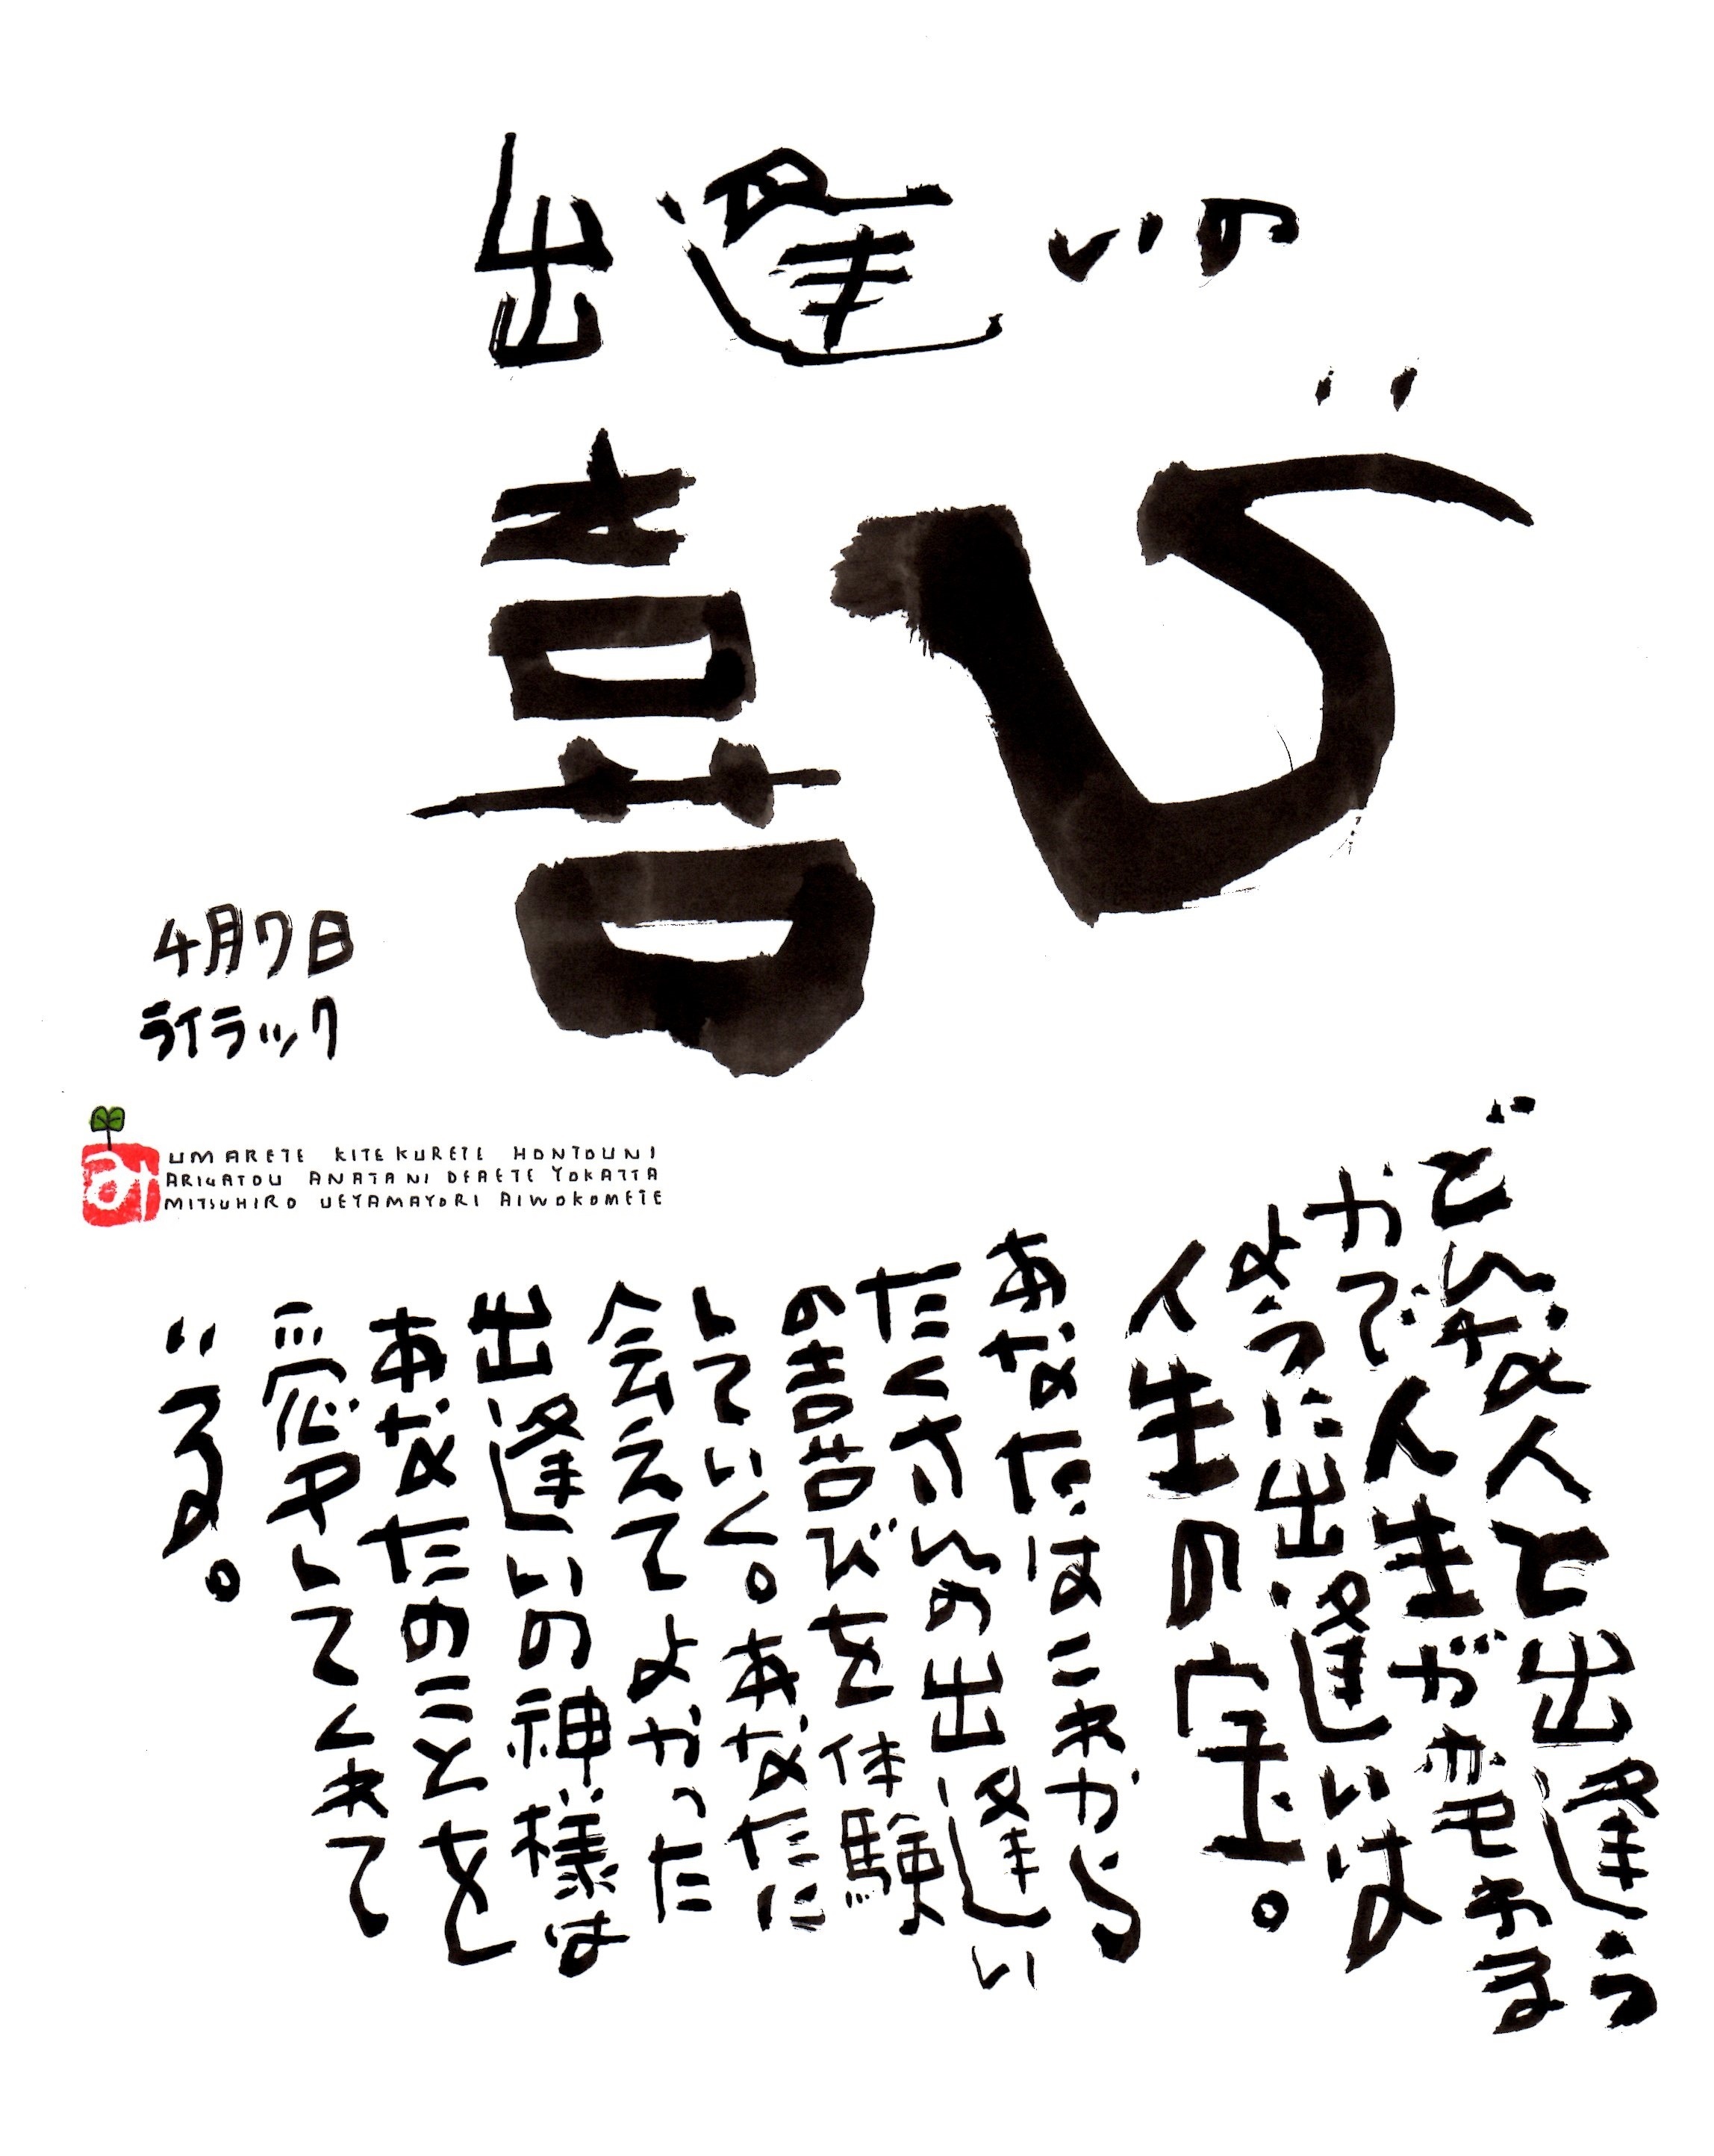 出逢いの
喜び
4月7日
ライラック
UMARETE KITEKURETE HONTOUNI
ARIGATOU ANATANI DEAETE YOKATTA
MITSUHIRO UEYAMAYORI AIWOKOMETE
どんな人と出逢う
かで人生が変わる
ように出逢いは
人生の宝。
あなたはこれから
たくさんの出逢い
の喜びを体験
していく。あなたに
会えてよかった
出逢いの神様は
あなたのことを
愛してくれて
いる。